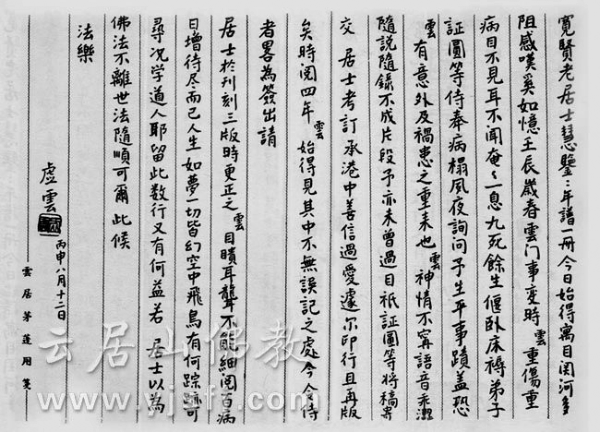 寬賢老居士慧鑒：年譜一冊今日始得寓目關河多
阻感嘆奚如憶壬辰歲春雲門事变時雲重傷重
病目不見耳不聞奄々一息九死餘生偃卧床褥弟子
証圓等侍奉病榻夙夜詢问予生平事蹟盖恐
雲有意外及禍患之重来也雲神情不甯語音未澈
隨說隨錄不成片段予亦未曾過目祇証圓等將稿寄
交 居士考訂承港中善信過爱遽尔印行且再版
矣時阅四年雲始得見其中不無誤記之處今令侍
者畧為簽出請
居士於刋刻三版時更正之雲目瞶耳聾不能細阅百病
日增待尽而已人生如夢一切皆幻空中飛鳥有何踪跡可
尋况学道人耶留此数行又有何益若 居士以為
佛法不離世法隨順可爾此候
法樂
虛雲
丙申八月十二日
雲居茅蓬用箋
云居山佛教
www.yjsfj.com